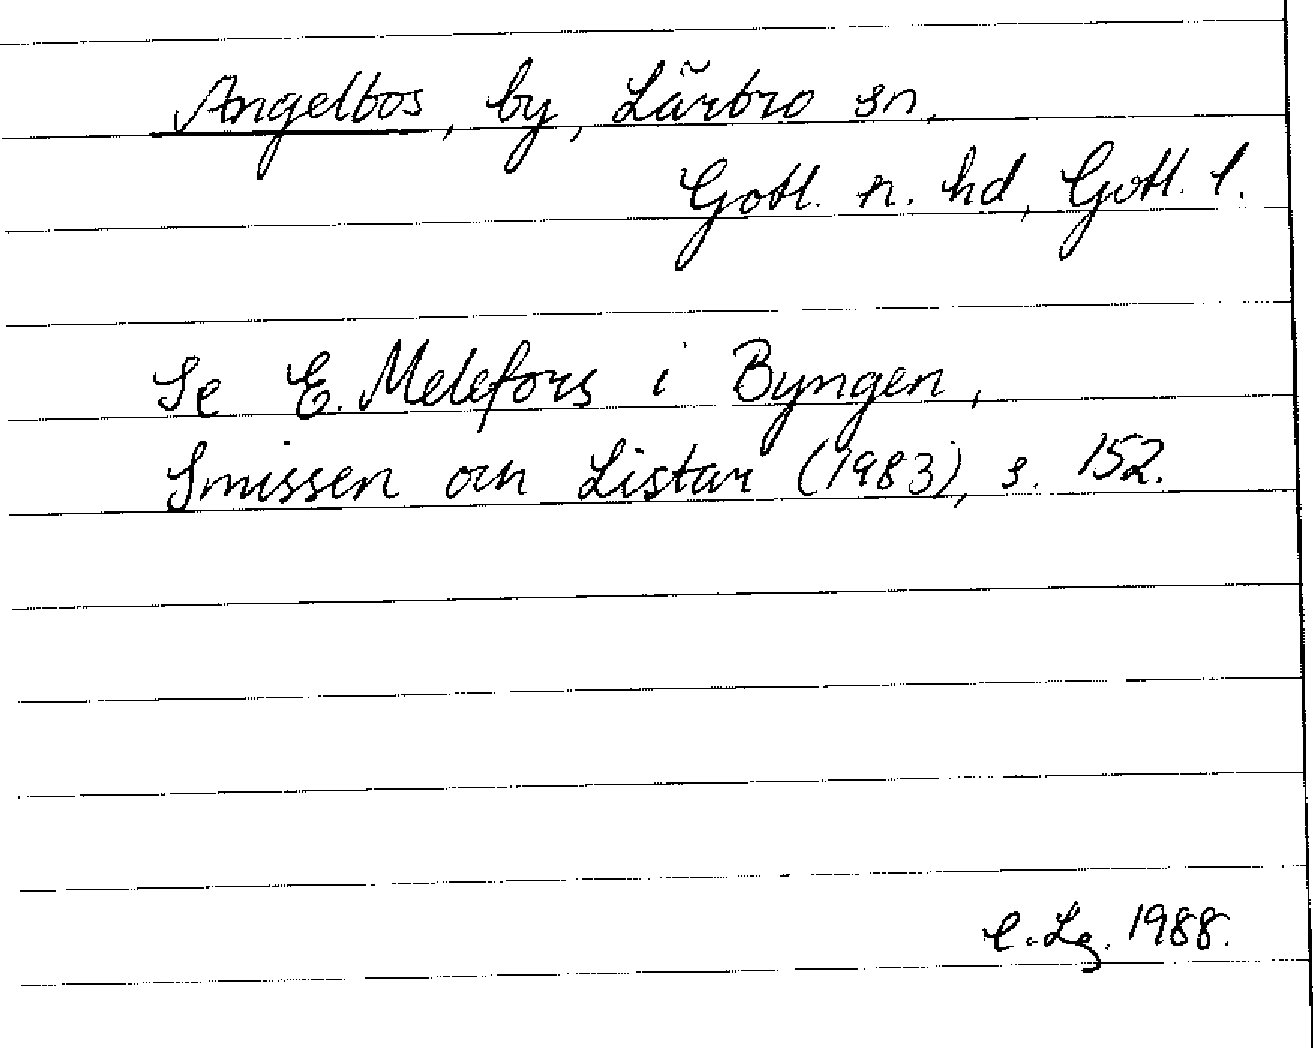 Angelbos, by, Lärbro sn,
Gotl. n. hd, Gotl. l.
Se E. Melefors i Byngen,
Smissen och Listar (1983), s. 152.
C. Lg. 1988.